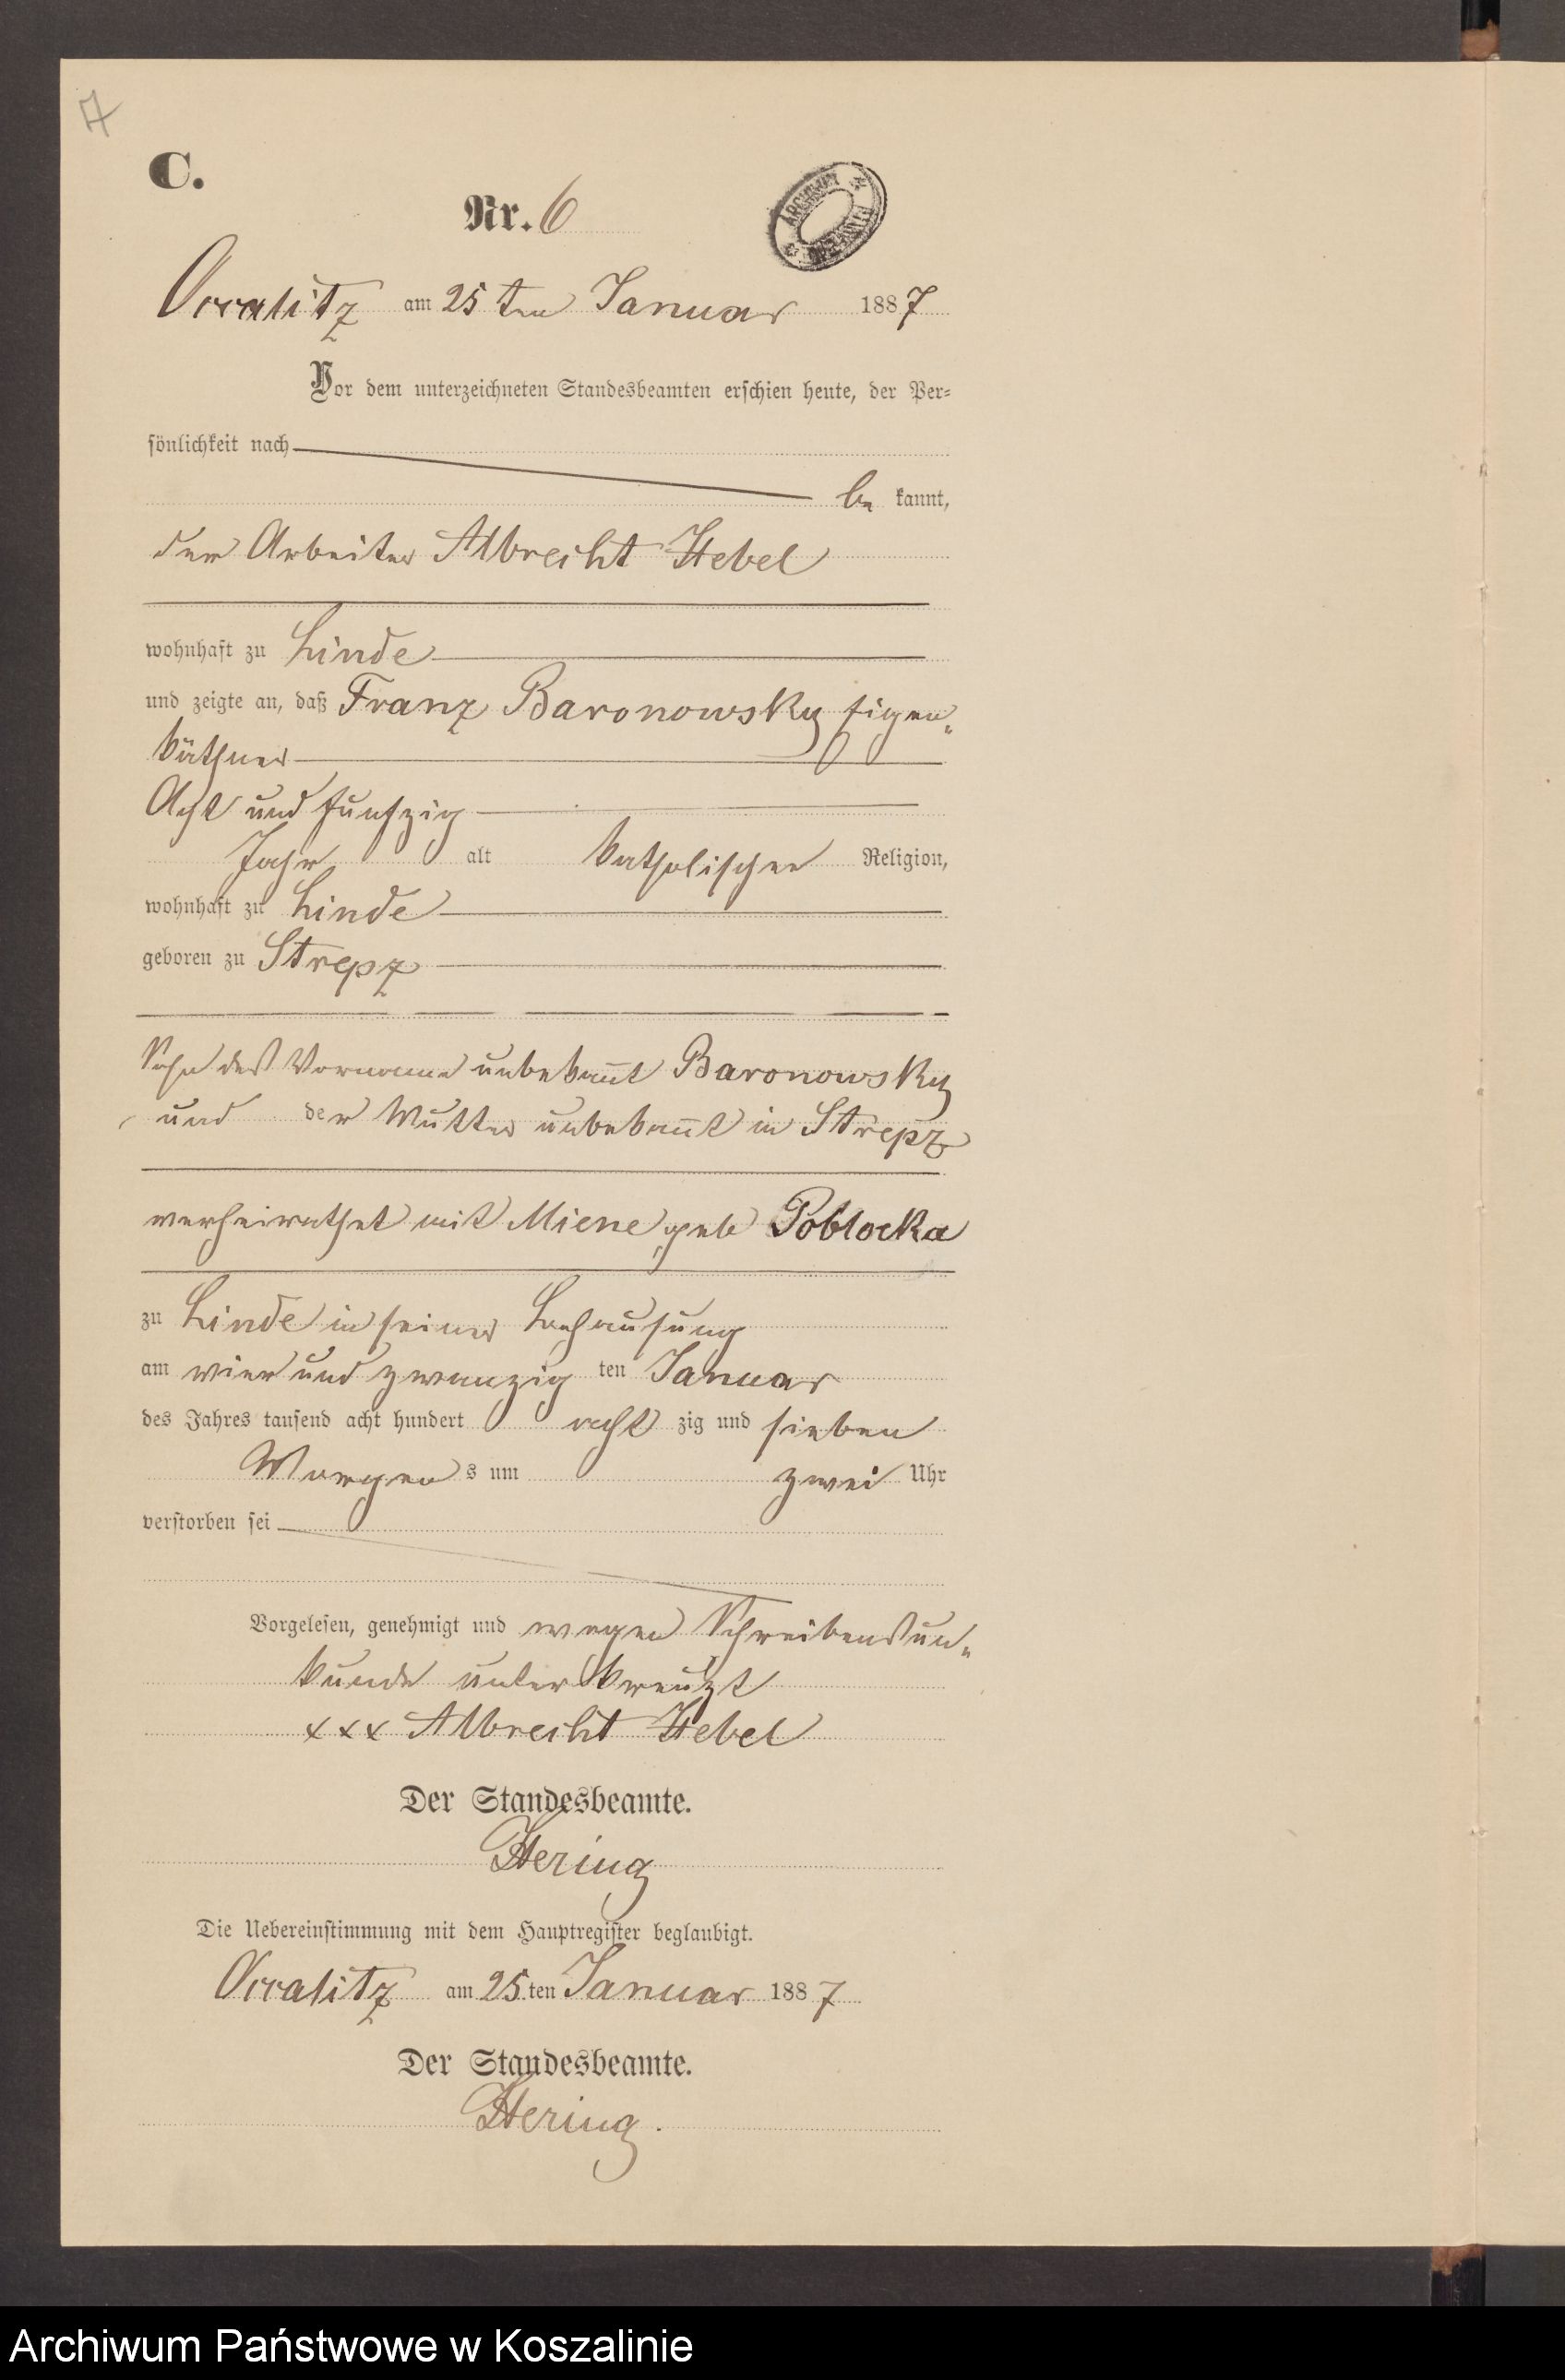 7
C.
Nr. 6
ARCHIWUM
Occalitz am 25 ten Januar 1887
Vor dem unterzeichneten Standesbeamten erschien heute, der Per-
sönlichkeit nach
be kannt,
der Arbeiter Albrecht Hebel
wohnhaft zu Linde
und zeigte an, daß Franz Baronowsky Eigen-
käthner
Acht und funfzig
Jahr alt katholischer Religion,
wohnhaft zu Linde
geboren zu Strepz
Sohn des Vorname unbekannt Baronowsky
und der Mutter unbekannt in Strepz
verheirathet mit Miene geb Poblocka
zu Linde in seiner Behausung
am vier und zwanzig ten Januar
des Jahres tausend acht hundert acht zig und sieben
Morgen s um zwei Uhr
verstorben sei
Vorgelesen, genehmigt und wegen Schreibensun-
kunde unterkreuzt
xxx Albrecht Hebel
Der Standesbeamte.
Hering
Die Uebereinstimmung mit dem Hauptregister beglaubigt.
Occalitz am 25.ten Januar 1887
Der Standesbeamte.
Hering.
Archiwum Państwowe w Koszalinie